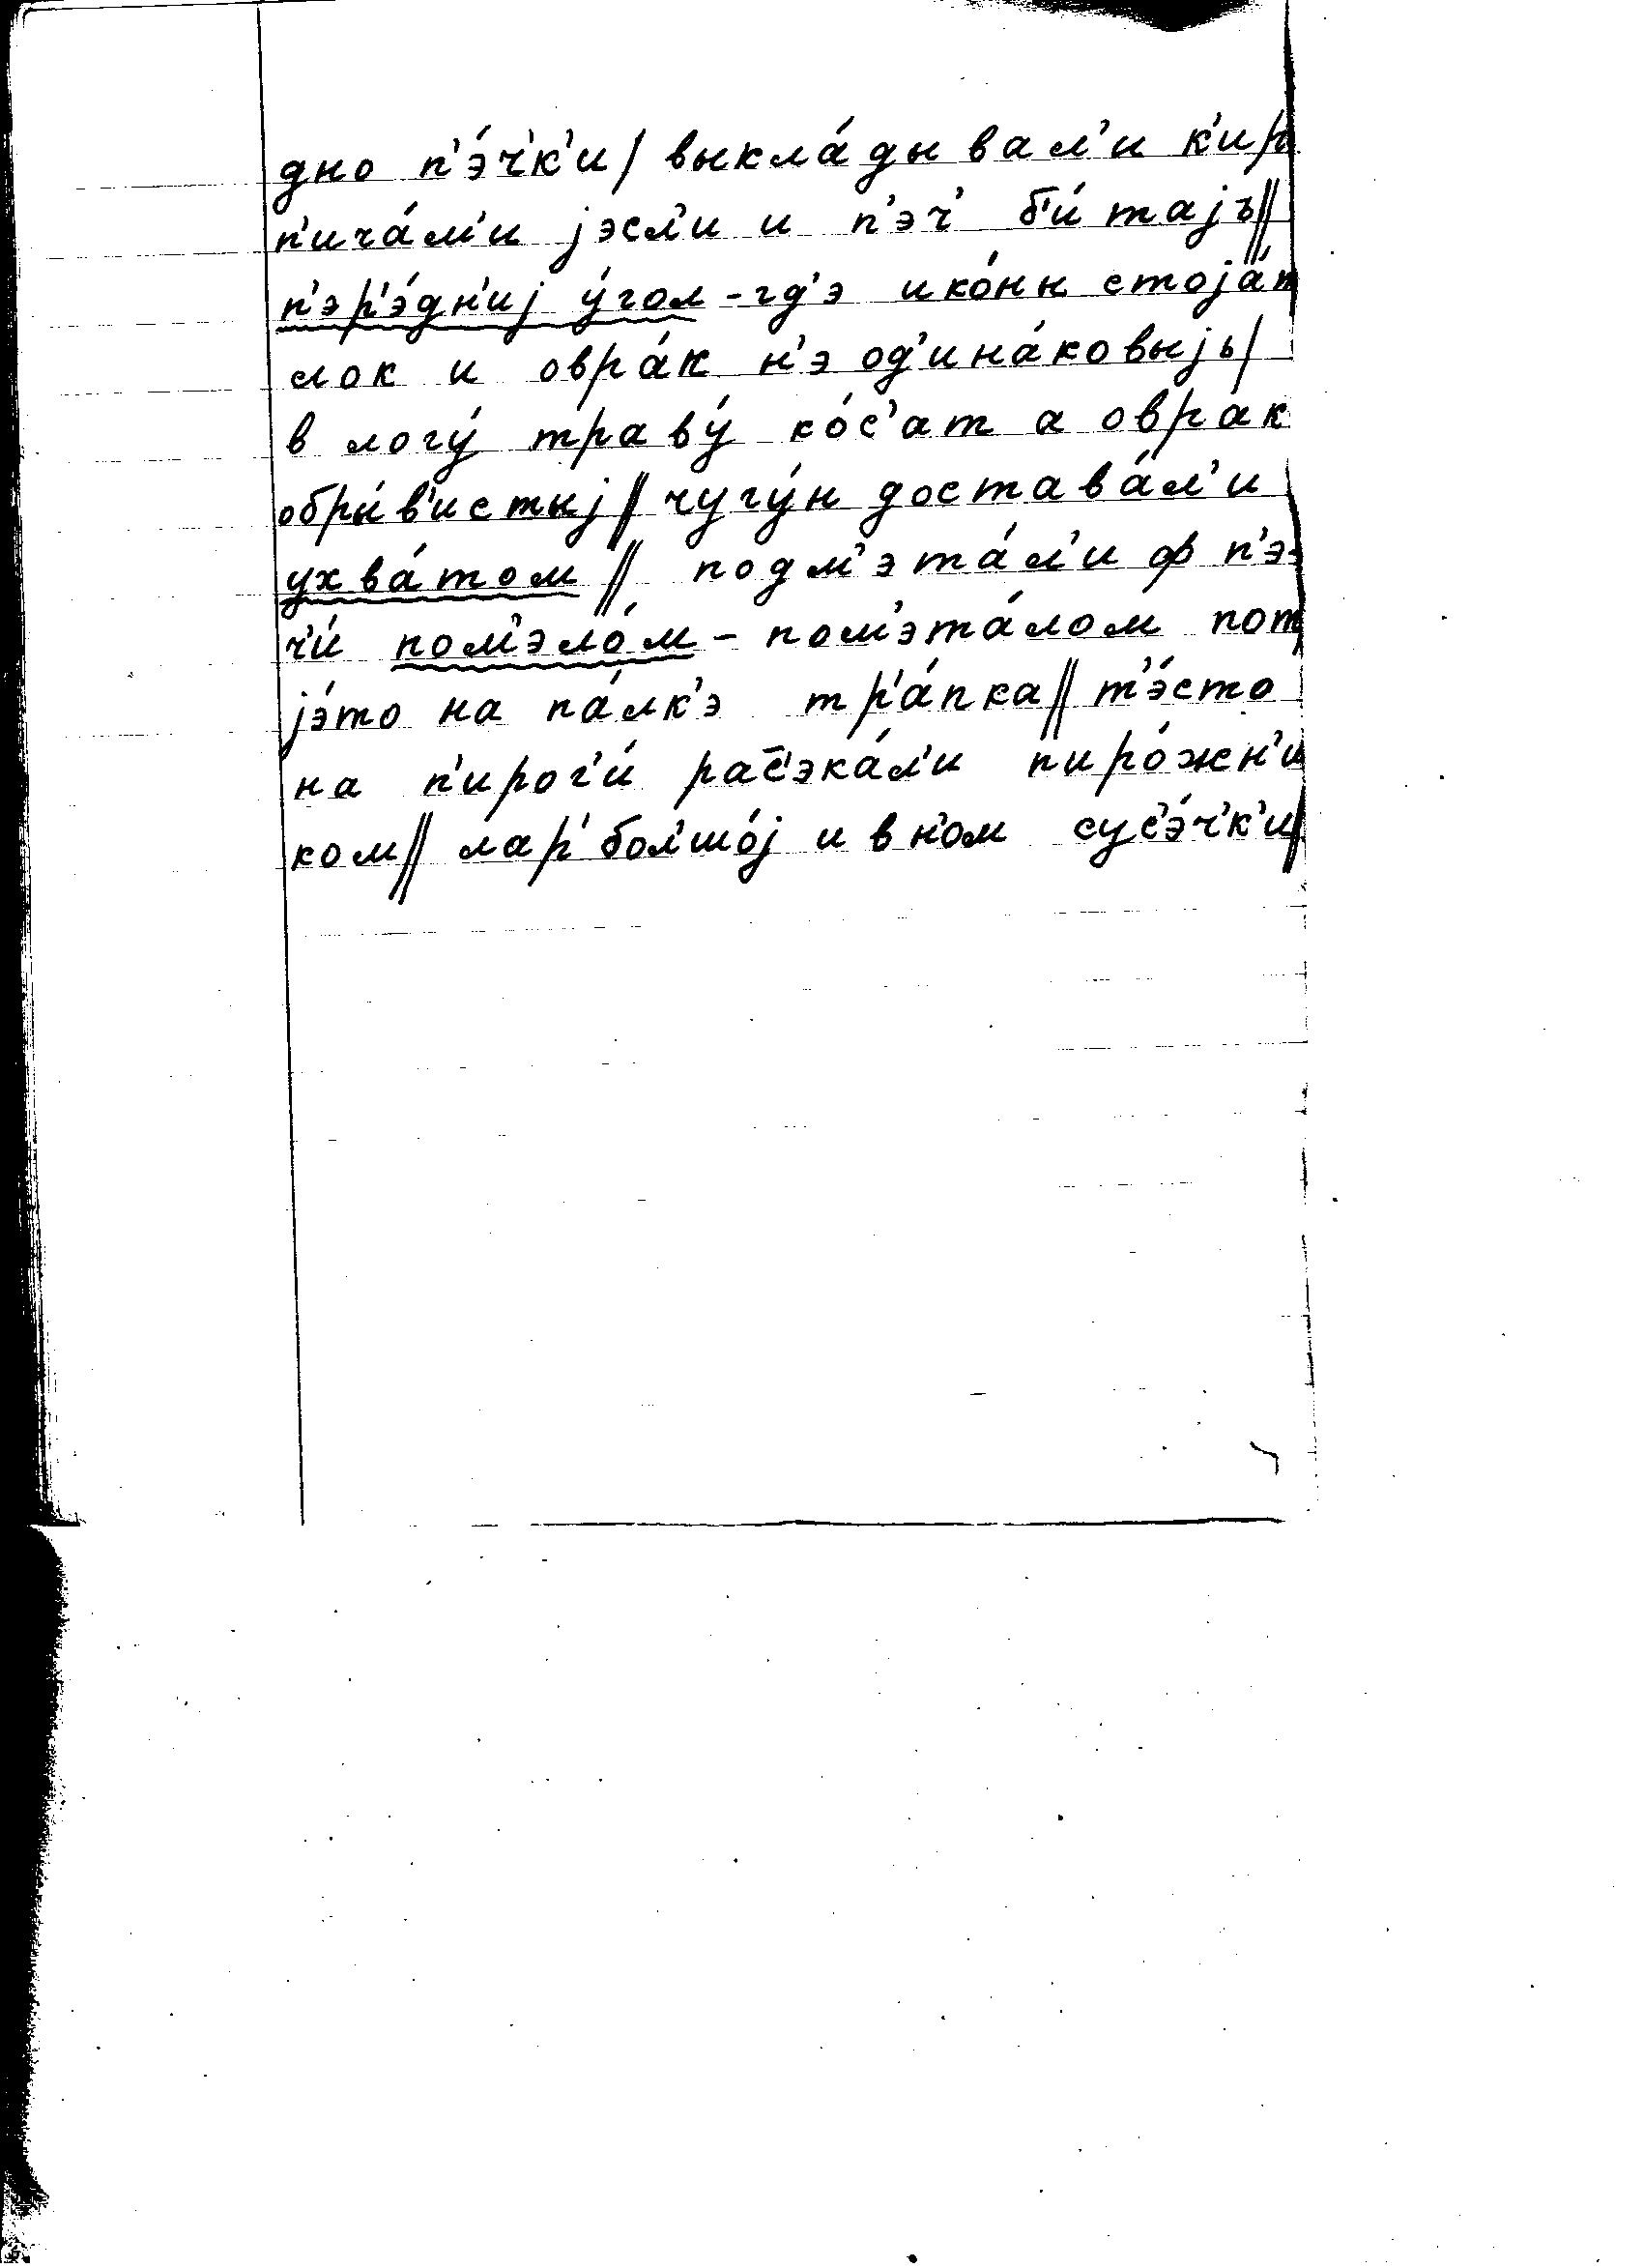 дно п'э́ч'к'и/ выкла́дывал'и к'ир
п'ича́м'и јэсл'и и п'эч' б'и́тајъ//
п'эр'э́дн'иј у́гол - гд'э ико́ны стоја́т
лок и овра́к н'э од'ина́ковыјь/
в логу́ траву́ ко́с'ат а овра́к
обры́в'истыј// чугу́н достава́л'и
ухва́том// подм'эта́л'и ф п'э-
ч'и́ пом'эло́м - пом'эта́лом пот
јэ́то на па́лк'э тр'а́пка// т'э́сто
на п'ирог'и́ рас̄'эка́л'и пиро́жн'и
ком// лар' бол'шо́ј и в н'ом сус'э́ч'к'и//